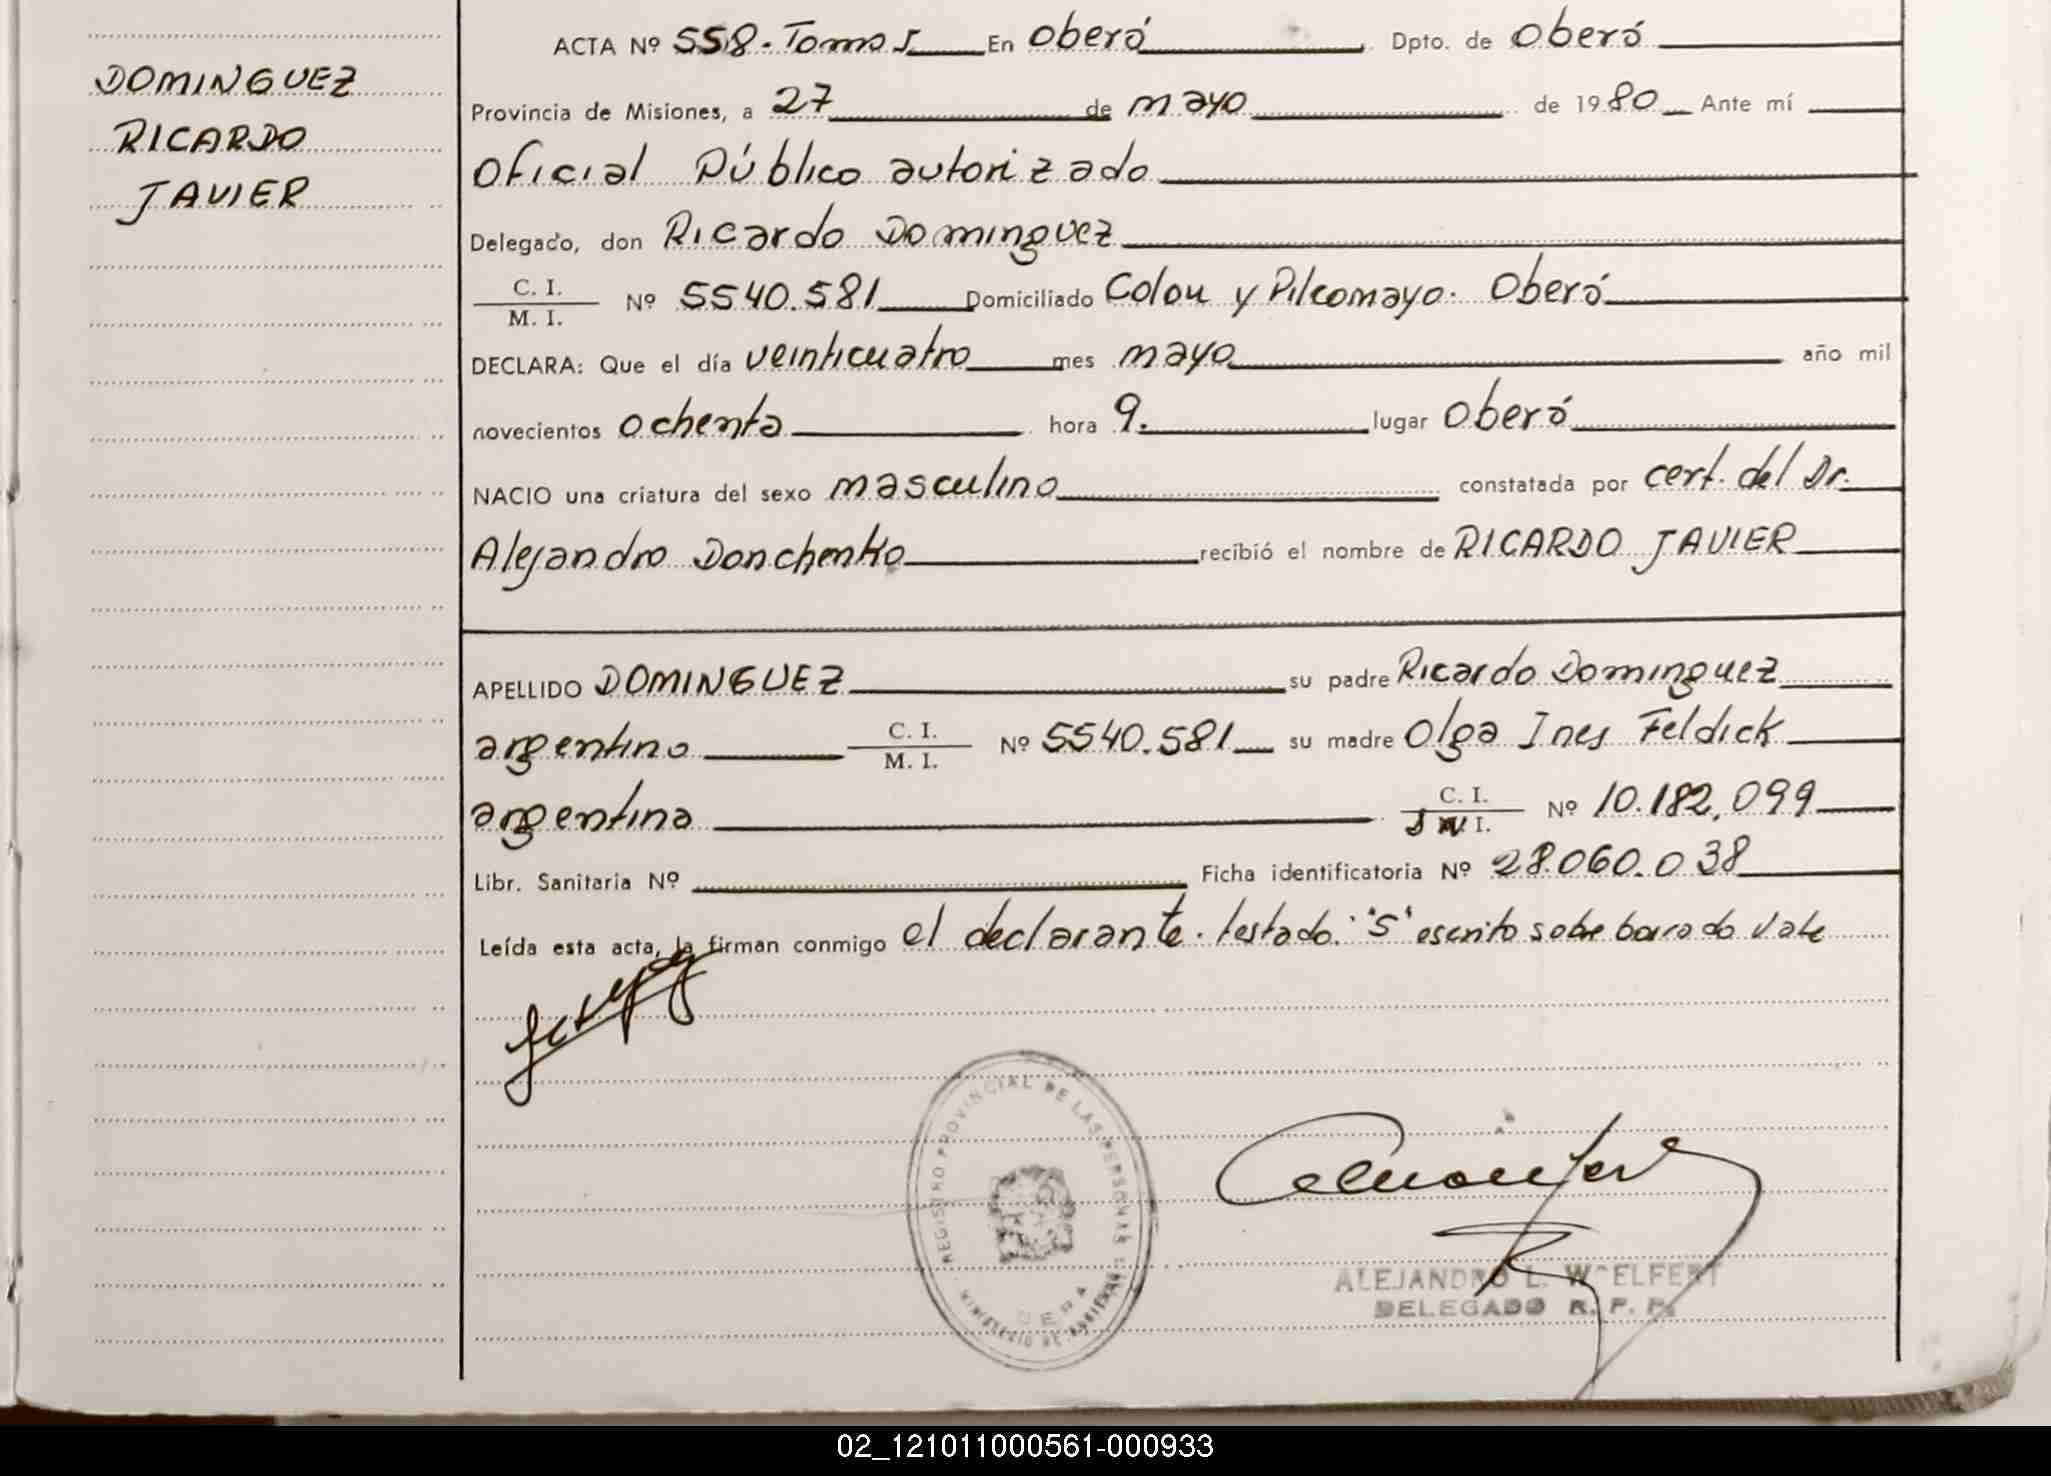 DOMINGUEZ
RICARDO
JAVIER
ACTA Nº 558. Tomo I En Oberá Dpto. de Oberá
Provincia de Misiones, a 27 de mayo de 1980 Ante mí
Oficial Público autorizado
Delegado, don Ricardo Dominguez
C. I. / M. I. Nº 5540.581 Domiciliado Colon y Pilcomayo. Oberá
DECLARA: Que el día veinticuatro mes mayo año mil
novecientos ochenta hora 9. lugar Oberá
NACIO una criatura del sexo masculino constatada por cert. del Dr.
Alejandro Donchenko recibió el nombre de RICARDO JAVIER
APELLIDO DOMINGUEZ su padre Ricardo Dominguez
argentino C. I. / M. I. Nº 5540.581 su madre Olga Ines Feldick
argentina C. I. / I. Nº 10.182,099
Libr. Sanitaria Nº Ficha identificatoria Nº 28.060.038
Leída esta acta, la firman conmigo el declarante. testado. "S" escrito sobre borrado vale
REGISTRO PROVINCIAL DE LAS PERSONAS
MINISTERIO DE GOBIERNO
ALEJANDRO L. WOELFERT
DELEGADO R. P. P.
02_121011000561-000933